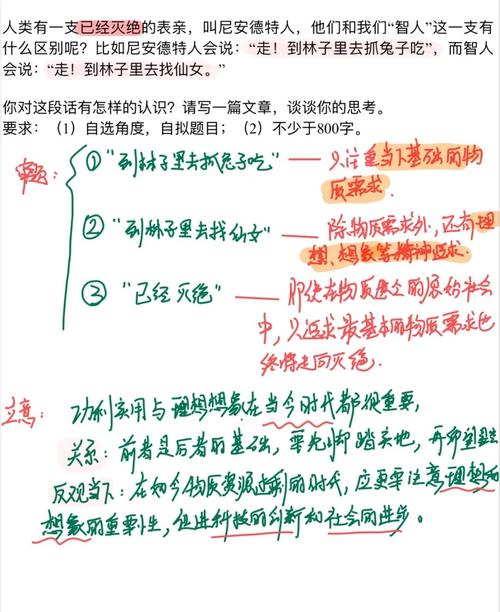 人类有一支已经灭绝的表亲，叫尼安德特人，他们和我们“智人”这一支有
什么区别呢？比如尼安德特人会说：“走！到林子里去抓兔子吃”，而智人
会说：“走！到林子里去找仙女。”
你对这段话有怎样的认识？请写一篇文章，谈谈你的思考。
要求：（1）自选角度，自拟题目；（2）不少于800字。
审题：
① “到林子里去抓兔子吃” —— 只注重当下基础的物
质需求.
② “到林子里去找仙女” —— 除物质需求外，还有理
想、想象等精神追求.
③ “已经灭绝” —— 即使在物质匮乏的原始社会
中，只追求最基本的物质需求也
终将走向灭绝.
立意： 功利实用与理想想象在当今时代都很重要，
关系：前者是后者的基础，要先脚踏实地，再仰望星空
反观当下：在如今物质资源过剩的时代，应更要注意理想和
想象的重要性，促进科技的创新和社会的进步。